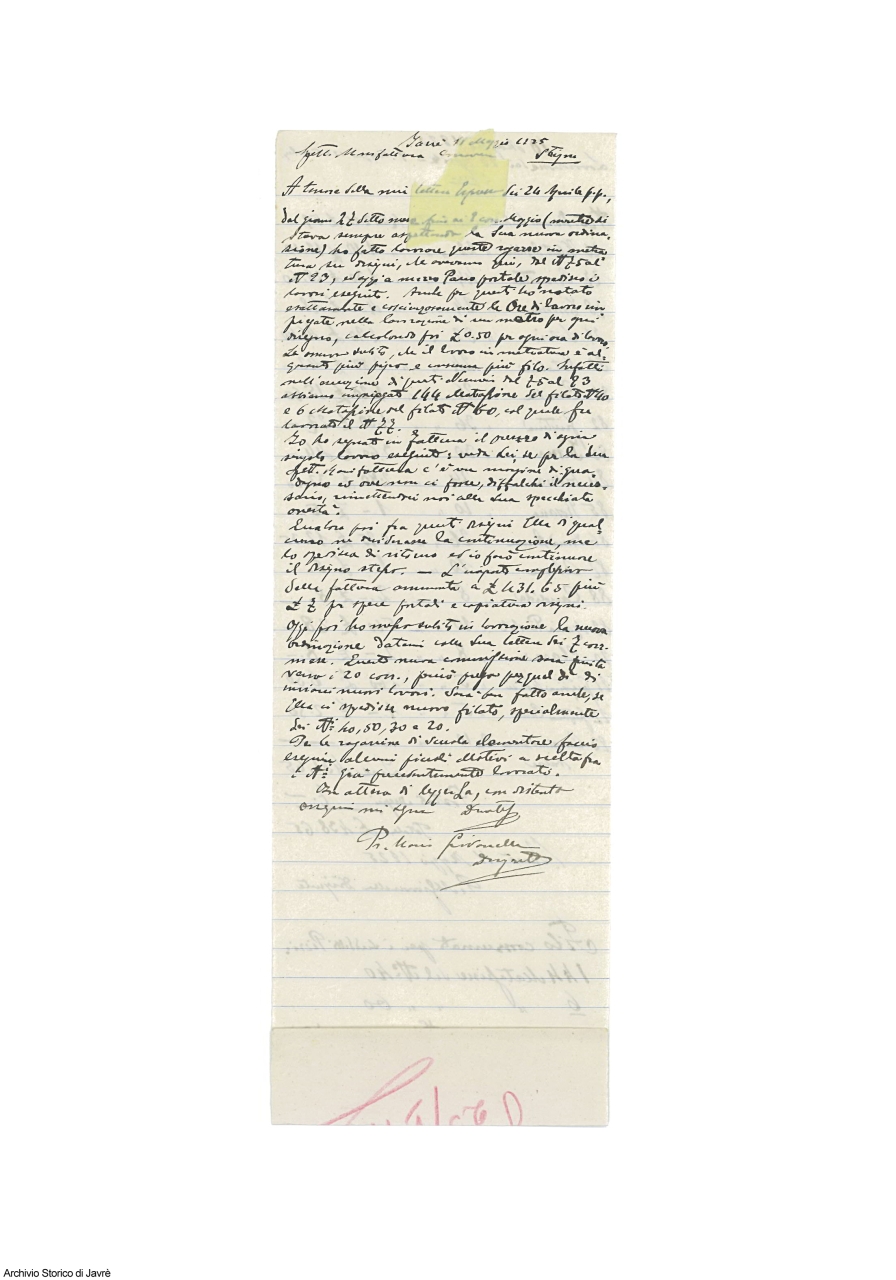 Javrè 11 Maggio 1925
Spett. Manifattura
A tenore della mia lettera Espresso dei 24 Aprile p.p.,
dal giorno 27 detto mese fino ai 8 corr. Maggio (mentre si
stava sempre aspettando la Sua nuova ordina-
zione) ho fatto lavorare queste ragazze in metra
tura su disegni, che avevano già, dal N° 75 al
N° 93, ed oggi a mezzo Pacco postale spedisco i
lavori eseguiti. Anche per questi ho notato
esattamente e coscienziosamente le Ore di lavoro im-
piegate nella lavorazione di un metro per ogni
disegno, calcolando poi £ 0.50 per ogni ora di lavoro.
Le osservo subito, che il lavoro in metratura è al-
quanto più e consuma più filo. Infatti
nell'esecuzione di questi Numeri dal 75 al 93
abbiamo impiegati 144 Matassine del filato N° 40
e 6 Matassine del filato N° 60, col quale fu
lavorato il N° 77.
Io ho segnato in Fattura il prezzo di ogni
singolo lavoro eseguito: veda Lei, se per la Sua
Spett. Manifattura c'è un margine di gua-
dagno ed ove non ci fosse, diffalchi il neces-
sario, rimettendomi noi alla Sua specchiata
onestà.
Qualora poi fra questi disegni Ella di qual-
cuno ne desiderasse la continuazione, me
lo spedisca di ritorno ed io farò continuare
il disegno stesso. — L'importo complessivo
della fattura ammonta a £ 431.65 più
£ 7 per spese postali e copiatura disegni.
Oggi poi ho messo subito in lavorazione la nuova
ordinazione datami colla Sua lettera dei 7 corr.
mese. Questa nuova commissione sarà finita
verso i 20 corr., perciò prego per quel dì di
inviarci nuovi lavori. Sarà ben fatto anche, se
Ella ci spedisse nuovo filato, specialmente
dei N° 40, 50, 30 e 20.
Per le ragazzine di Scuola elementare faccio
eseguire alcuni piccoli Motivi a scelta fra
i N° già precedentemente lavorati.
In attesa di leggerLa, con distinta
ossequi mi segno Devotiss